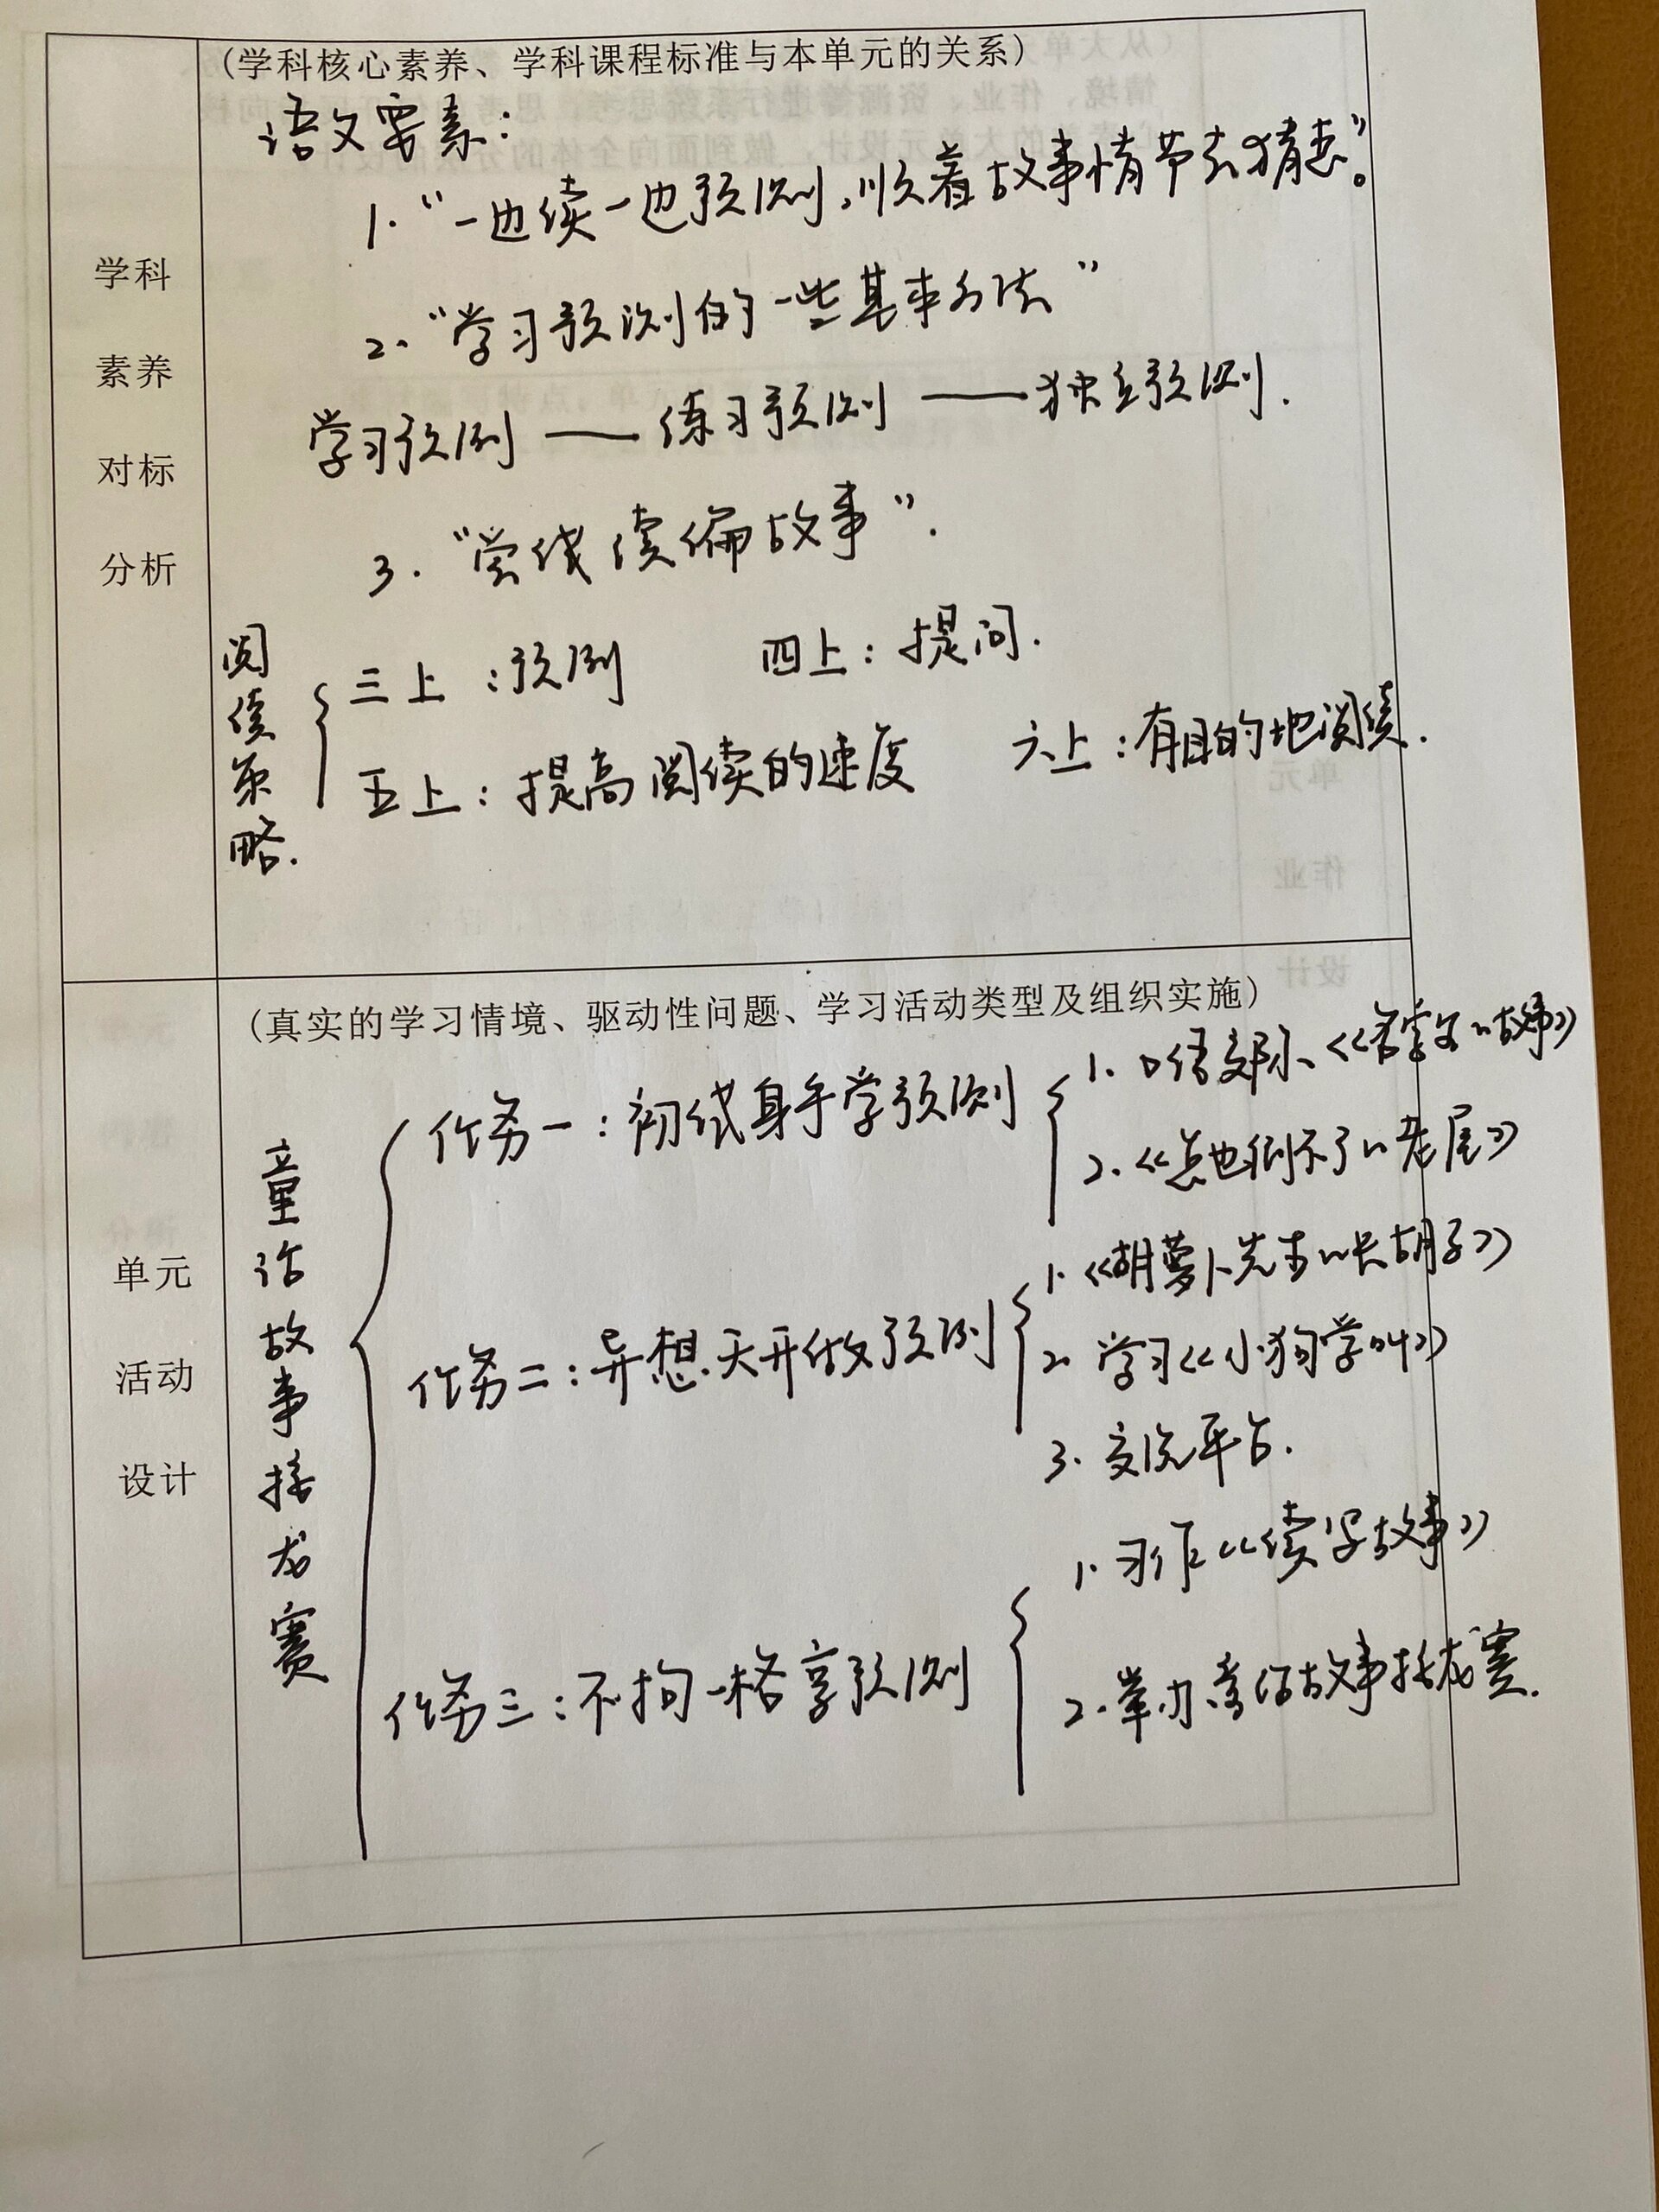 (学科核心素养、学科课程标准与本单元的关系)
语文要素：
1.“一边读一边预测，顺着故事情节去猜想”。
2.“学习预测的一些基本方法”
学习预测——练习预测——独立预测.
3.“尝试续编故事”.
学科
素养
对标
分析
阅读策略.
三上：预测 四上：提问.
五上：提高阅读的速度 六上：有目的地阅读.
(真实的学习情境、驱动性问题、学习活动类型及组织实施)
单元
活动
设计
童话故事接龙赛
任务一：初试身手学预测
1.口语交际、《名字里的故事》
2.《总也倒不了的老屋》
任务二：异想天开做预测
1.《胡萝卜先生的长胡子》
2.学习《小狗学叫》
3.交流平台.
任务三：不拘一格享预测
1.习作《续写故事》
2.举办童话故事接龙赛.